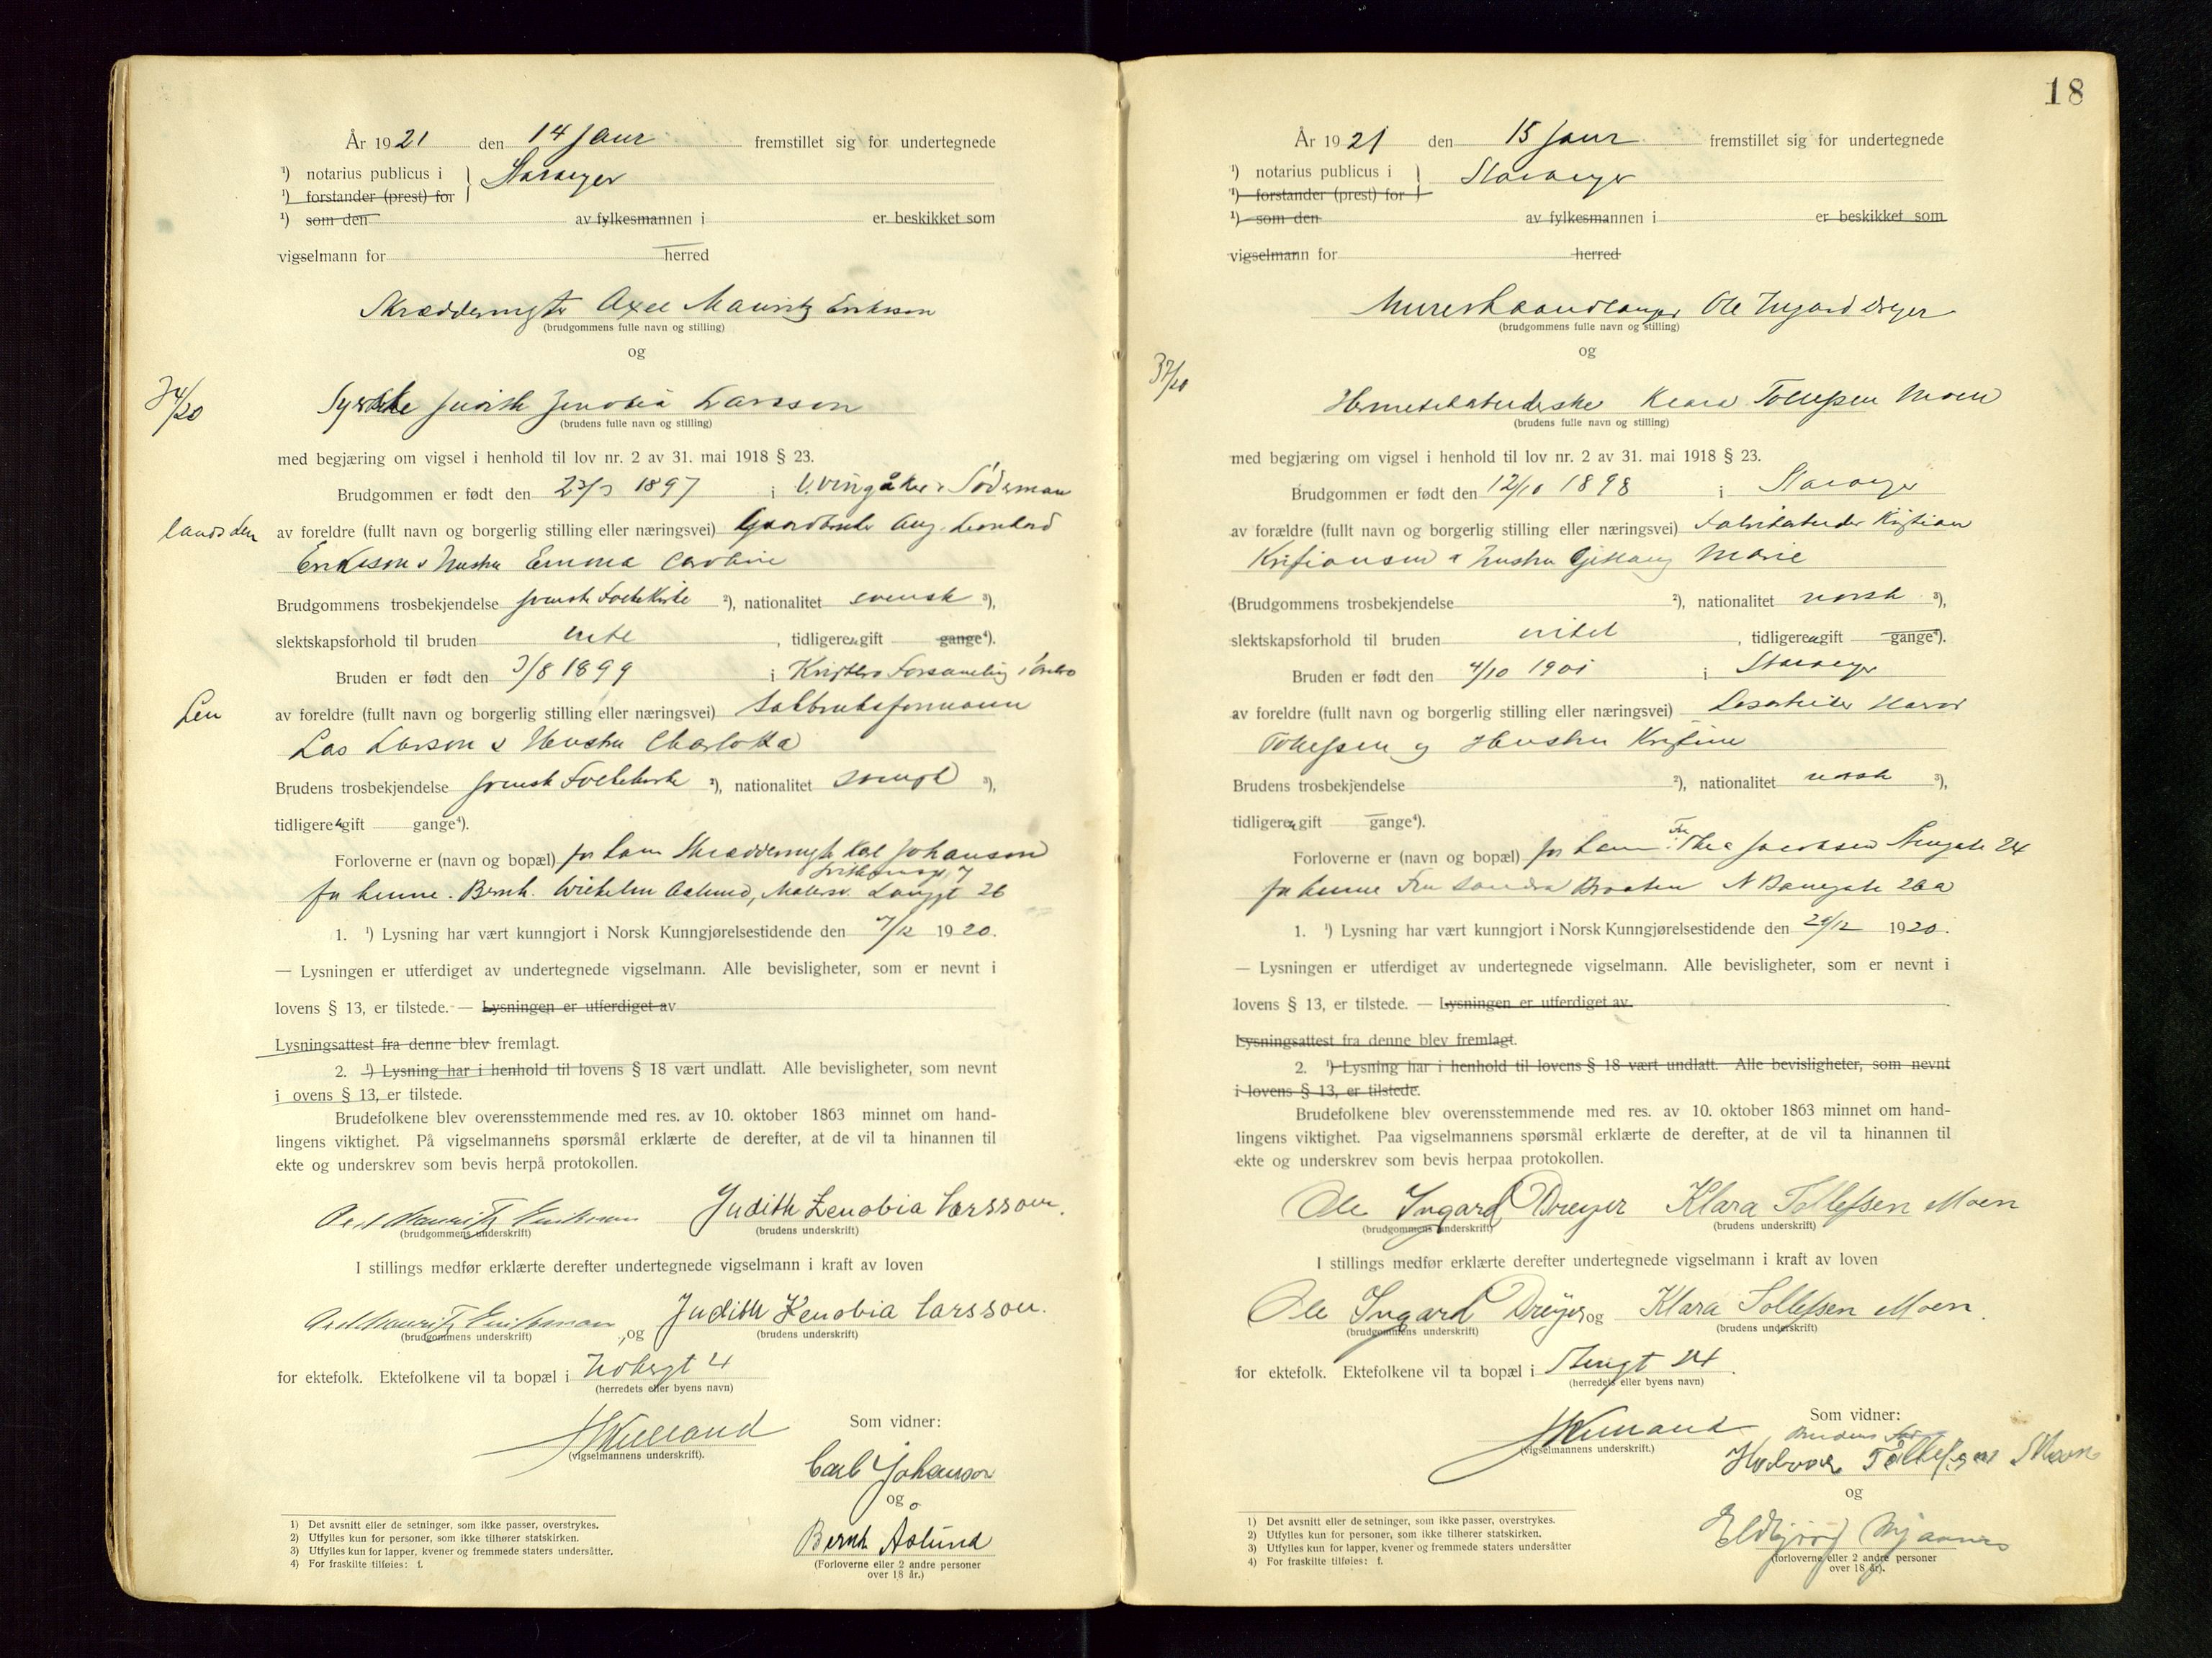 År 1921 den 14 Janr fremstillet sig for undertegnede
¹) notarius publicus i } Stavanger
¹) forstander (prest) for
¹) som den av fylkesmannen i er beskikket som
vigselmann for herred
Axel Mauritz Eriksson
(brudgommens fulle navn og stilling)
og
34/20
Judith Zenobia Larsson
(brudens fulle navn og stilling)
med begjæring om vigsel i henhold til lov nr. 2 av 31. mai 1918 § 23.
Brudgommen er født den 23/3 1897 i V. Vingåker i Söderman
landsden av foreldre (fullt navn og borgerlig stilling eller næringsvei) Gaardbruker Aug. Leonhard
Eriksson & hustru Emma Caroline
Brudgommens trosbekjendelse svensk Folkekirke ²), nationalitet svensk ³),
slektskapsforhold til bruden intet, tidligere gift gange⁴).
Bruden er født den 3/8 1899 i
Len av foreldre (fullt navn og borgerlig stilling eller næringsvei)
Larson & Hustru Charlotta
Brudens trosbekjendelse svensk Folkekirke ²), nationalitet svensk ³),
tidligere gift gange⁴).
Forloverne er (navn og bopæl) for ham Karl Johanson
for henne. Bernh. Wilhelm Aslund, Langgt 26
1. ¹) Lysning har vært kunngjort i Norsk Kunngjørelsestidende den 7/12 1920.
— Lysningen er utferdiget av undertegnede vigselmann. Alle bevisligheter, som er nevnt i
lovens § 13, er tilstede. — Lysningen er utferdiget av
Lysningsattest fra denne blev fremlagt.
2. ¹) Lysning har i henhold til lovens § 18 vært undlatt. Alle bevisligheter, som nevnt
i ovens § 13, er tilstede.
Brudefolkene blev overensstemmende med res. av 10. oktober 1863 minnet om hand-
lingens viktighet. På vigselmannens spørsmål erklærte de derefter, at de vil ta hinannen til
ekte og underskrev som bevis herpå protokollen.
Axel Mauritz Eriksson Judith Zenobia Larsson.
(brudgommens underskrift) (brudens underskrift)
I stillings medfør erklærte derefter undertegnede vigselmann i kraft av loven
Axel Mauritz Eriksson, og Judith Zenobia Larsson.
(brudgommens underskrift) (brudens underskrift)
for ektefolk. Ektefolkene vil ta bopæl i 4
(herredets eller byens navn)
Kielland
(vigselmannens underskrift).
Som vidner:
Carl Johanson
og
Bernh Åslund
(Forloverne eller 2 andre personer
over 18 år.)
1) Det avsnitt eller de setninger, som ikke passer, overstrykes.
2) Utfylles kun for personer, som ikke tilhører statskirken.
3) Utfylles kun for lapper, kvener og fremmede staters undersåtter.
4) For fraskilte tilføies: f.
18
År 1921 den 15 Janr fremstillet sig for undertegnede
¹) notarius publicus i } Stavanger
¹) forstander (prest) for
¹) som den av fylkesmannen i er beskikket som
vigselmann for herred
Murerhaandlanger Ole Ingard Dreyer
(brudgommens fulle navn og stilling)
og
37/20
Hermetikarbeiderske Klara Tollefsen Moen
(brudens fulle navn og stilling)
med begjæring om vigsel i henhold til lov nr. 2 av 31. mai 1918 § 23.
Brudgommen er født den 12/10 1898 i Stavanger
av forældre (fullt navn og borgerlig stilling eller næringsvei) Fabrikarbeider Kristian
Kristiansen & hustru Marie
(Brudgommens trosbekjendelse ²), nationalitet norsk ³),
slektskapsforhold til bruden intet, tidligere gift gange⁴).
Bruden er født den 4/10 1901 i Stavanger
av foreldre (fullt navn og borgerlig stilling eller næringsvei) Løsarbeider
Tollefsen og Hustru Kristine
Brudens trosbekjendelse ²), nationalitet norsk ³),
tidligere gift gange⁴).
Forloverne er (navn og bopæl) for ham: Fru Thea Jacobsen 24
for henne Fru Sandra Braaten N Banegate 26a
1. ¹) Lysning har vært kunngjort i Norsk Kunngjørelsestidende den 1920.
— Lysningen er utferdiget av undertegnede vigselmann. Alle bevisligheter, som er nevnt i
lovens § 13, er tilstede. — Lysningen er utferdiget av
Lysningsattest fra denne blev fremlagt.
2. ¹) Lysning har i henhold til lovens § 18 vært undlatt. Alle bevisligheter, som nevnt
i lovens § 13, er tilstede.
Brudefolkene blev overensstemmende med res. av 10. oktober 1863 minnet om hand-
lingens viktighet. Paa vigselmannens spørsmål erklærte de derefter, at de vil ta hinannen til
ekte og underskrev som bevis herpaa protokollen.
Ole Ingard Dreyer Klara Tollefsen Moen
(brudgommens underskrift) (brudens underskrift)
I stillings medfør erklærte derefter undertegnede vigselmann i kraft av loven
Ole Ingard Dreyer og Klara Tollefsen Moen.
(brudgommens underskrift) (brudens underskrift)
for ektefolk. Ektefolkene vil ta bopæl i 24.
(herredets eller byens navn)
Kielland
(vigselmannens underskrift.)
Som vidner:
Brudens
Tollefsen Moen
og
(forloverne eller 2 andre personer
over 18 år).
1) Det avsnitt eller de setninger, som ikke passer, overstrykes.
2) Utfylles kun for personer, som ikke tilhører statskirken.
3) Utfylles kun for lapper, kvener og fremmede staters undersåtter
4) For fraskilte tilføies: f.